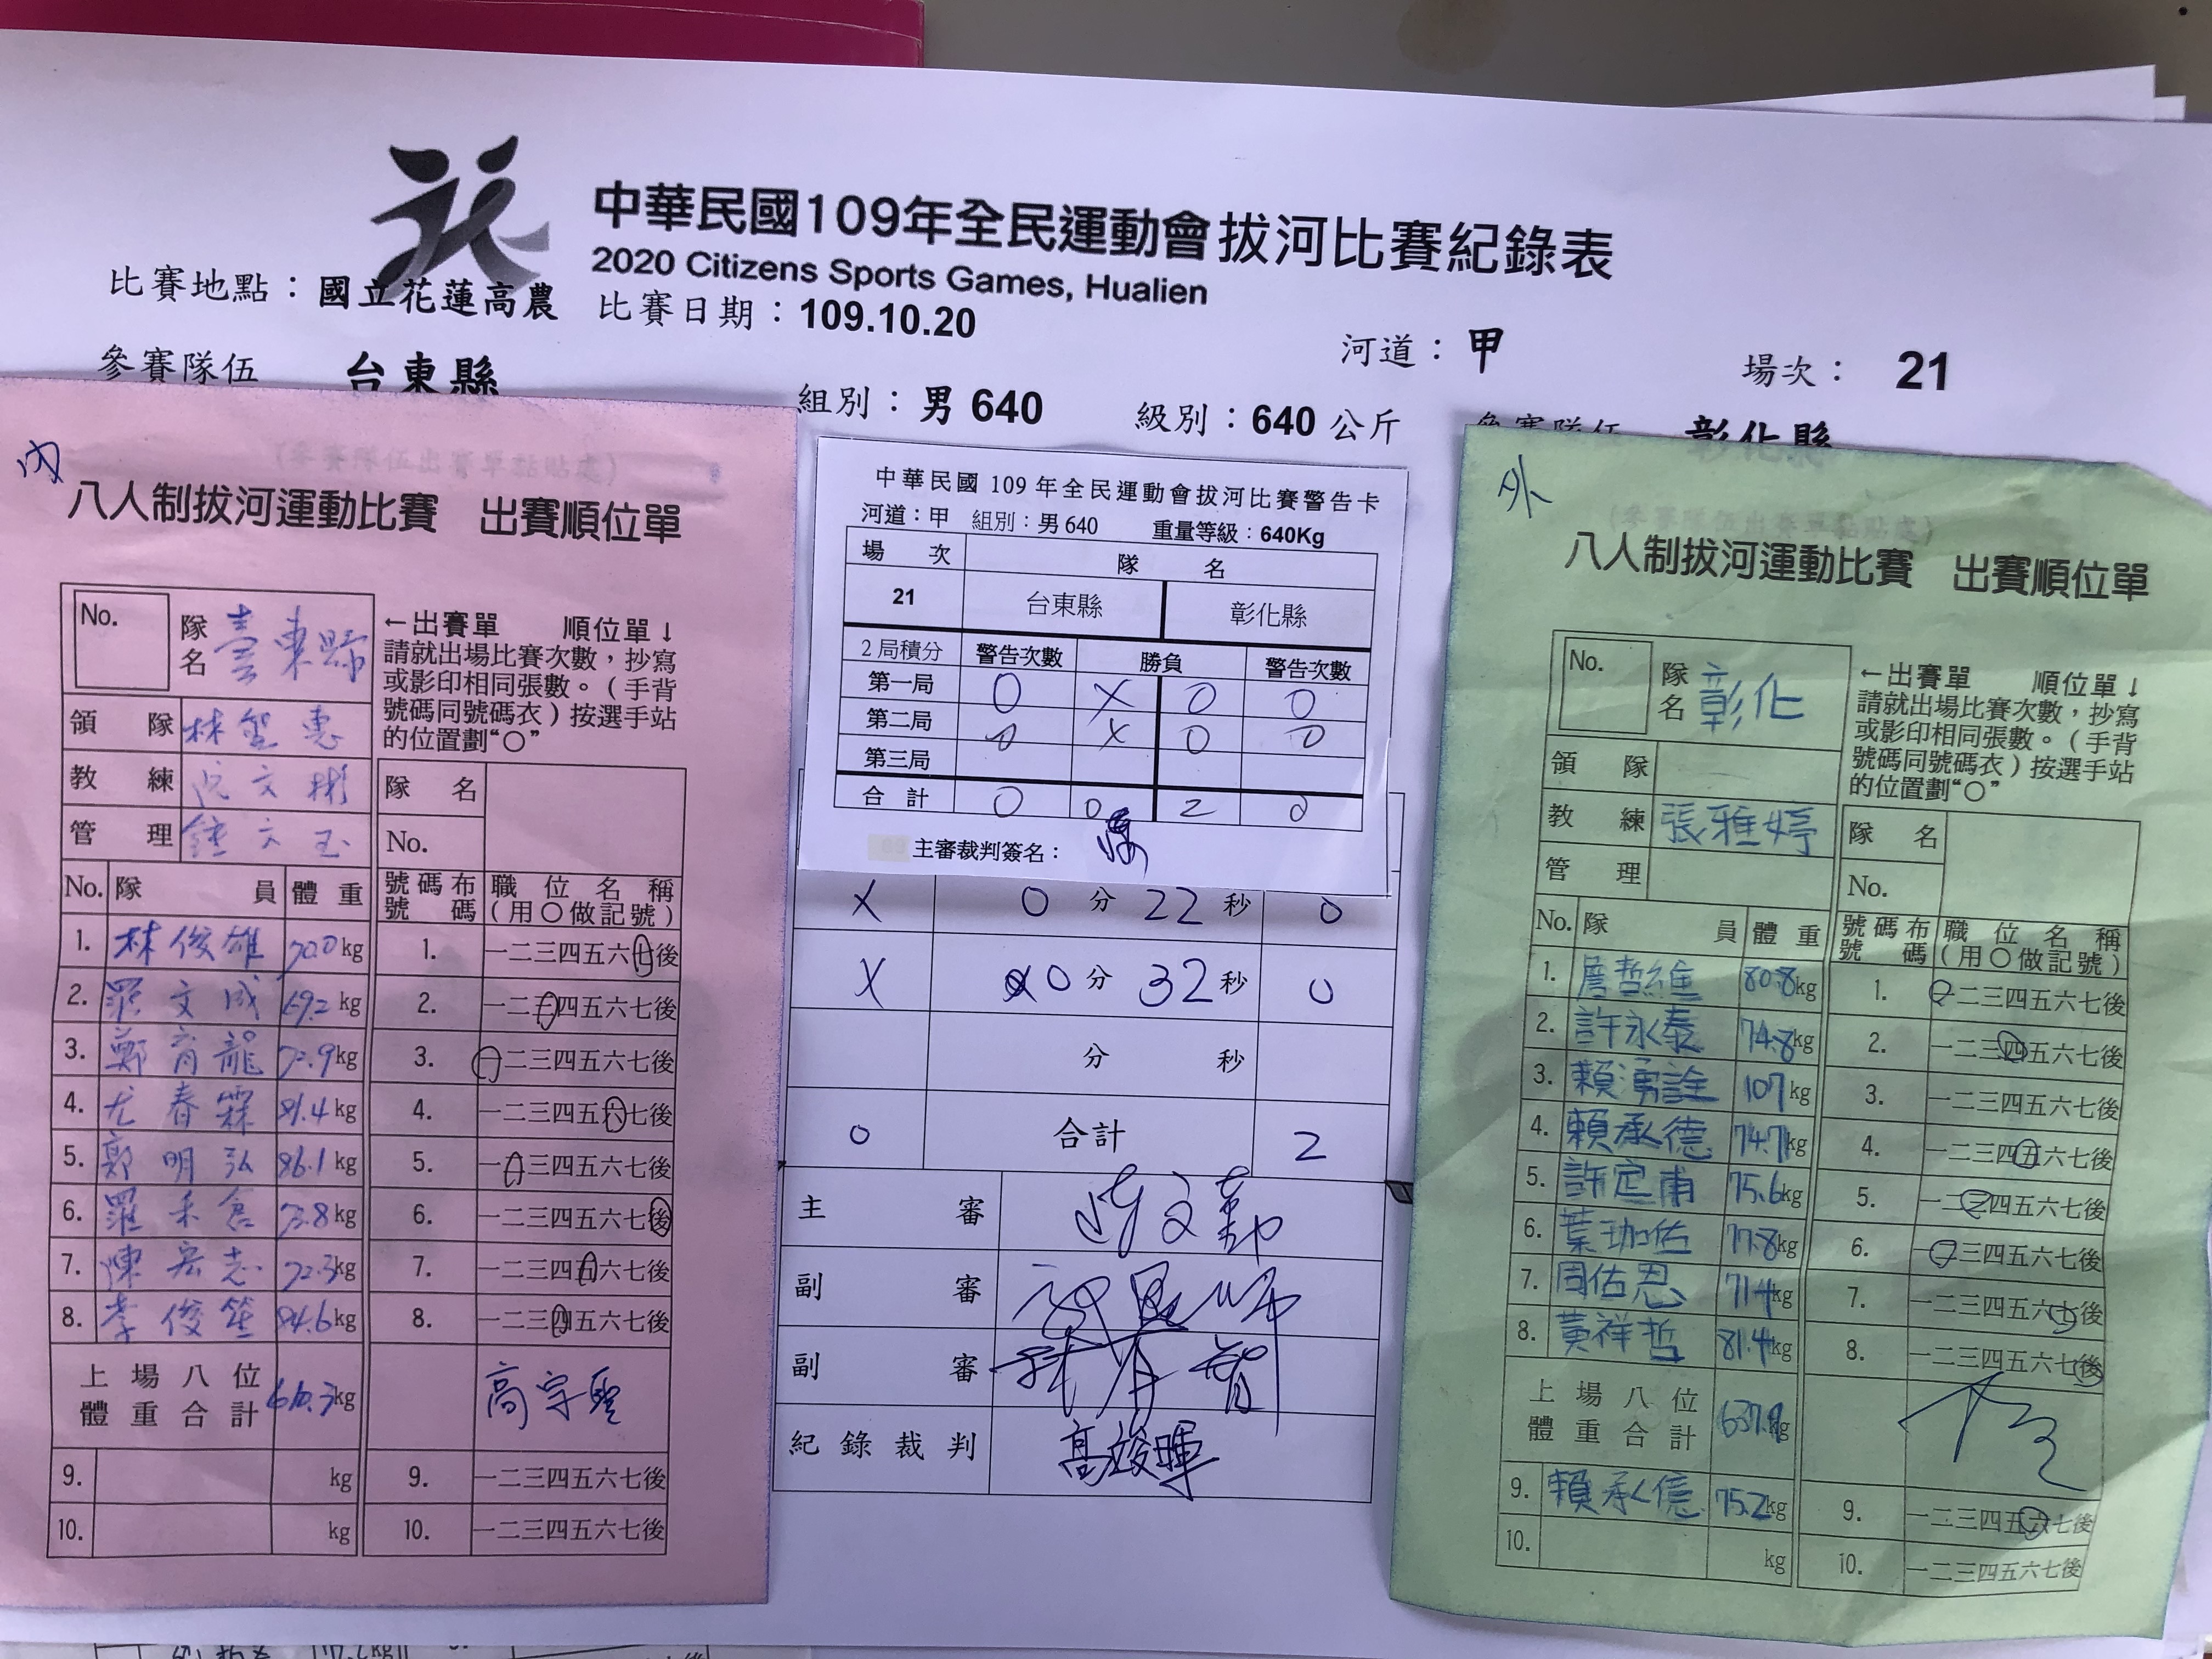 中華民國109年全民運動會拔河比賽紀錄表
2020 Citizens Sports Games, Hualien
比賽地點：國立花蓮高農 比賽日期：109.10.20
河道：甲 場次：21
參賽隊伍 台東縣
組別：男 640 級別：640 公斤
參賽隊伍 彰化縣
內
(參賽隊伍出賽單黏貼處)
八人制拔河運動比賽 出賽順位單
No. 隊名 臺東縣
←出賽單 順位單↓
請就出場比賽次數，抄寫
或影印相同張數。（手背
號碼同號碼衣）按選手站
的位置劃“○”
領隊 林智惠
教練 阮文彬
管理 鍾文玉
隊名
No.
No. 隊員 體重 號碼布號碼 職位名稱（用○做記號）
1. 林俊雄 70.0kg 1. 一二三四五六七後
2. 羅文成 69.2kg 2. 一二三四五六七後
3. 鄭育龍 72.9kg 3. 一二三四五六七後
4. 尤春霖 81.4kg 4. 一二三四五六七後
5. 鄭明弘 86.1kg 5. 一二三四五六七後
6. 羅禾倉 73.8kg 6. 一二三四五六七後
7. 陳宏志 72.3kg 7. 一二三四五六七後
8. 李俊笙 84.6kg 8. 一二三四五六七後
上場八位體重合計 610.3kg 高宇聖
9. kg 9. 一二三四五六七後
10. kg 10. 一二三四五六七後
中華民國 109 年全民運動會拔河比賽警告卡
河道：甲 組別：男 640 重量等級：640Kg
場次 隊名
21 台東縣 彰化縣
2 局積分 警告次數 勝負 警告次數
第一局 0 X 0 0
第二局 0 X 0 0
第三局
合計 0 0 2 0
主審裁判簽名：
X 0 分 22 秒 0
X 0 分 32 秒 0
分 秒
0 合計 2
主審
副審
副審
紀錄裁判 高竣暉
外
(參賽隊伍出賽單黏貼處)
八人制拔河運動比賽 出賽順位單
No. 隊名 彰化
←出賽單 順位單↓
請就出場比賽次數，抄寫
或影印相同張數。（手背
號碼同號碼衣）按選手站
的位置劃“○”
領隊
教練 張雅婷
管理
隊名
No.
No. 隊員 體重 號碼布號碼 職位名稱（用○做記號）
1. 詹哲維 80.8kg 1. 一二三四五六七後
2. 許永泰 74.8kg 2. 一二三四五六七後
3. 賴湧詮 107kg 3. 一二三四五六七後
4. 賴承德 74.7kg 4. 一二三四五六七後
5. 許定甫 75.6kg 5. 一二三四五六七後
6. 葉珈佑 77.8kg 6. 一二三四五六七後
7. 周佑恩 71.4kg 7. 一二三四五六七後
8. 黃祥哲 81.4kg 8. 一二三四五六七後
上場八位體重合計 kg
9. 賴承億 75.2kg 9. 一二三四五六七後
10. kg 10. 一二三四五六七後